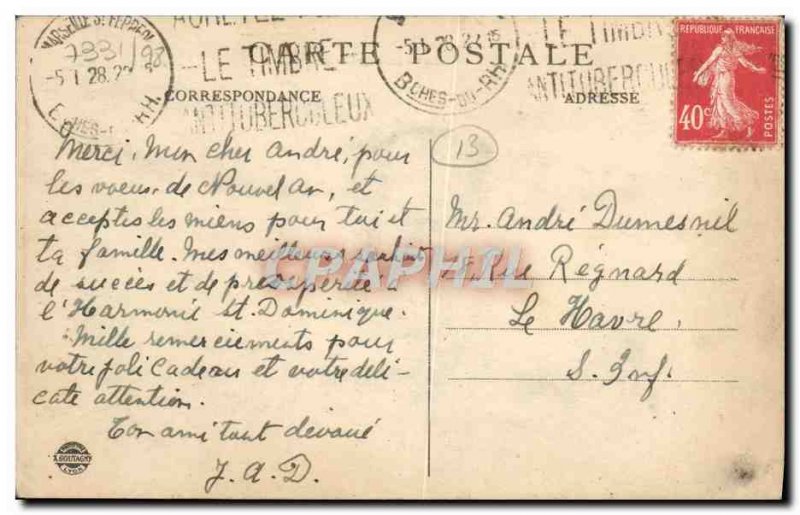 MARSEILLE St FERREOL
7331/98
-5 1 28.
Bches-DU-RH.
LE TIMBRE
ANTITUBERCULEUX
CARTE POSTALE
CORRESPONDANCE
ADRESSE
-5 1 28
Bches-DU-RH.
LE TIMBRE
ANTITUBERCULEUX
REPUBLIQUE FRANÇAISE
40c
POSTES
13
Merci, Mon cher André, pour
les voeux de Nouvel An, et
acceptes les miens pour toi et
ta famille. Mes meilleurs souhaits
de succès et de prospérité à
l'Harmonie St. Dominique.
Mille remerciements pour
votre joli Cadeau et votre déli-
cate attention.
Ton ami tout dévoué
J. A. D.
Mr. André Dumesnil
Rue Régnard
Le Havre,
S. Inf.
CPAPHIL
X. GOUTAGNY
LYON